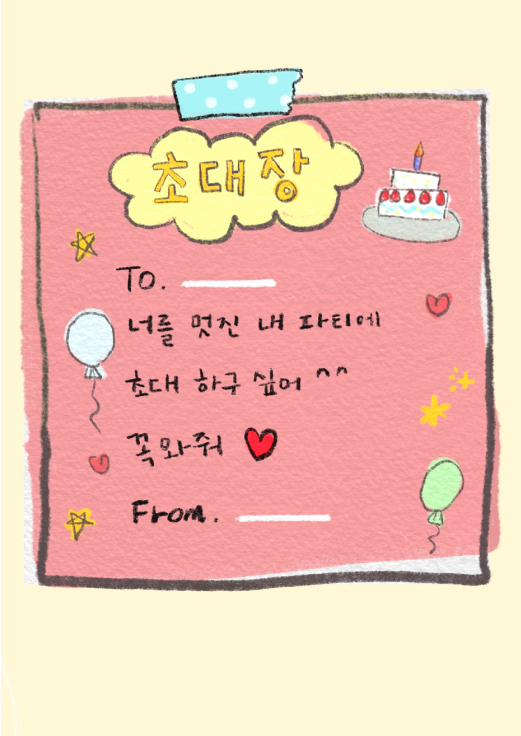 초대장
To.
너를 멋진 내 파티에
초대 하구 싶어 ^^
꼭 와줘 ♥
From.